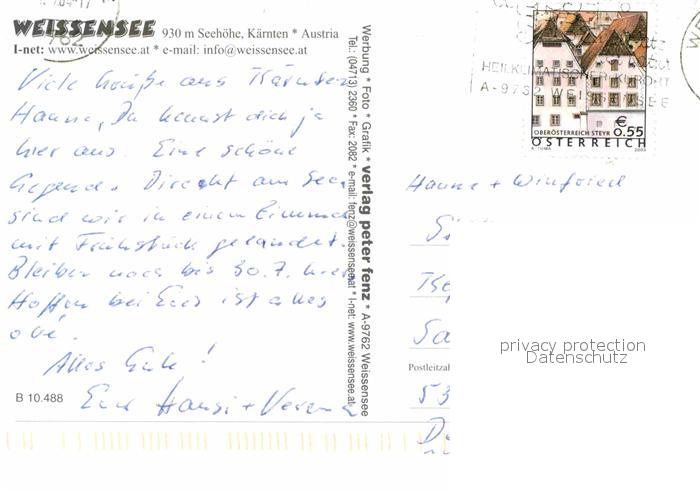 WEISSENSEE 930 m Seehöhe, Kärnten * Austria
I-net: www.weissensee.at * e-mail: info@weissensee.at
Viele Grüße aus Kärnten
Hanne, Du kennst dich ja
hier aus. Eine schöne
Gegend. Direkt am See
sind wir in einem Zimmer
mit Frühstück gelandet.
Bleiben noch bis 30.7. hier
Hoffen bei Euch ist alles
oké.
Alles Gute!
Eure Hansi + Verena
B 10.488
Werbung * Foto * Grafik * verlag peter fenz * A-9762 Weissensee
Tel.: (04713) 2360 * Fax: 2082 * e-mail: fenz@weissensee.at * I-net: www.weissensee.at
HEILKLIMATISCHER KURORT
A-9762 WEISSENSEE
€ 0.55
OBERÖSTERREICH STEYR
ÖSTERREICH
A. TUMA 2003
Hanne + Winfried
privacy protection
Datenschutz
Postleitzahl
53